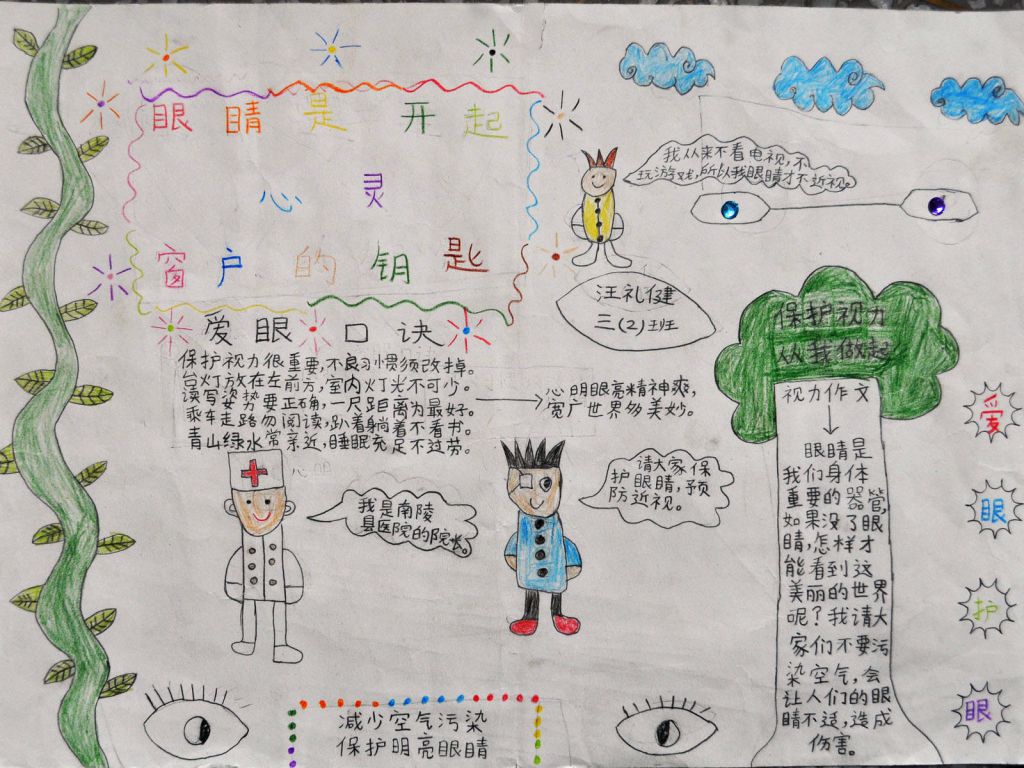 眼睛是开起
心灵
窗户的钥匙
我从来不看电视,不
玩游戏,所以我眼睛才不近视。
汪礼健
三(2)班
爱眼口诀
保护视力很重要,不良习惯须改掉。
台灯放在左前方,室内灯光不可少。
读写姿势要正确,一尺距离为最好。
乘车走路勿阅读,趴着躺着不看书。
青山绿水常亲近,睡眠充足不过劳。
心明眼亮精神爽,
宽广世界多美妙。
我是南陵
县医院的院长。
请大家保
护眼睛,预
防近视。
减少空气污染
保护明亮眼睛
保护视力
从我做起
视力作文
眼睛是
我们身体
重要的器管,
如果没了眼
睛,怎样才
能看到这
美丽的世界
呢?我请大
家们不要污
染空气,会
让人们的眼
睛不适,造成
伤害。
爱
眼
护
眼